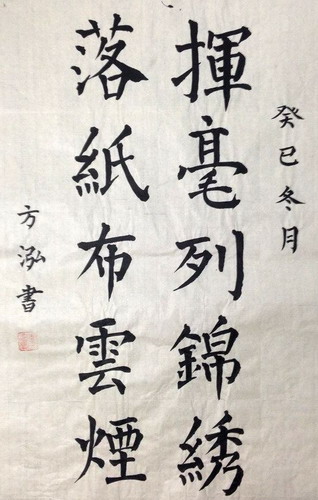 癸巳冬月
揮毫列錦綉
落紙布雲煙
方泓書